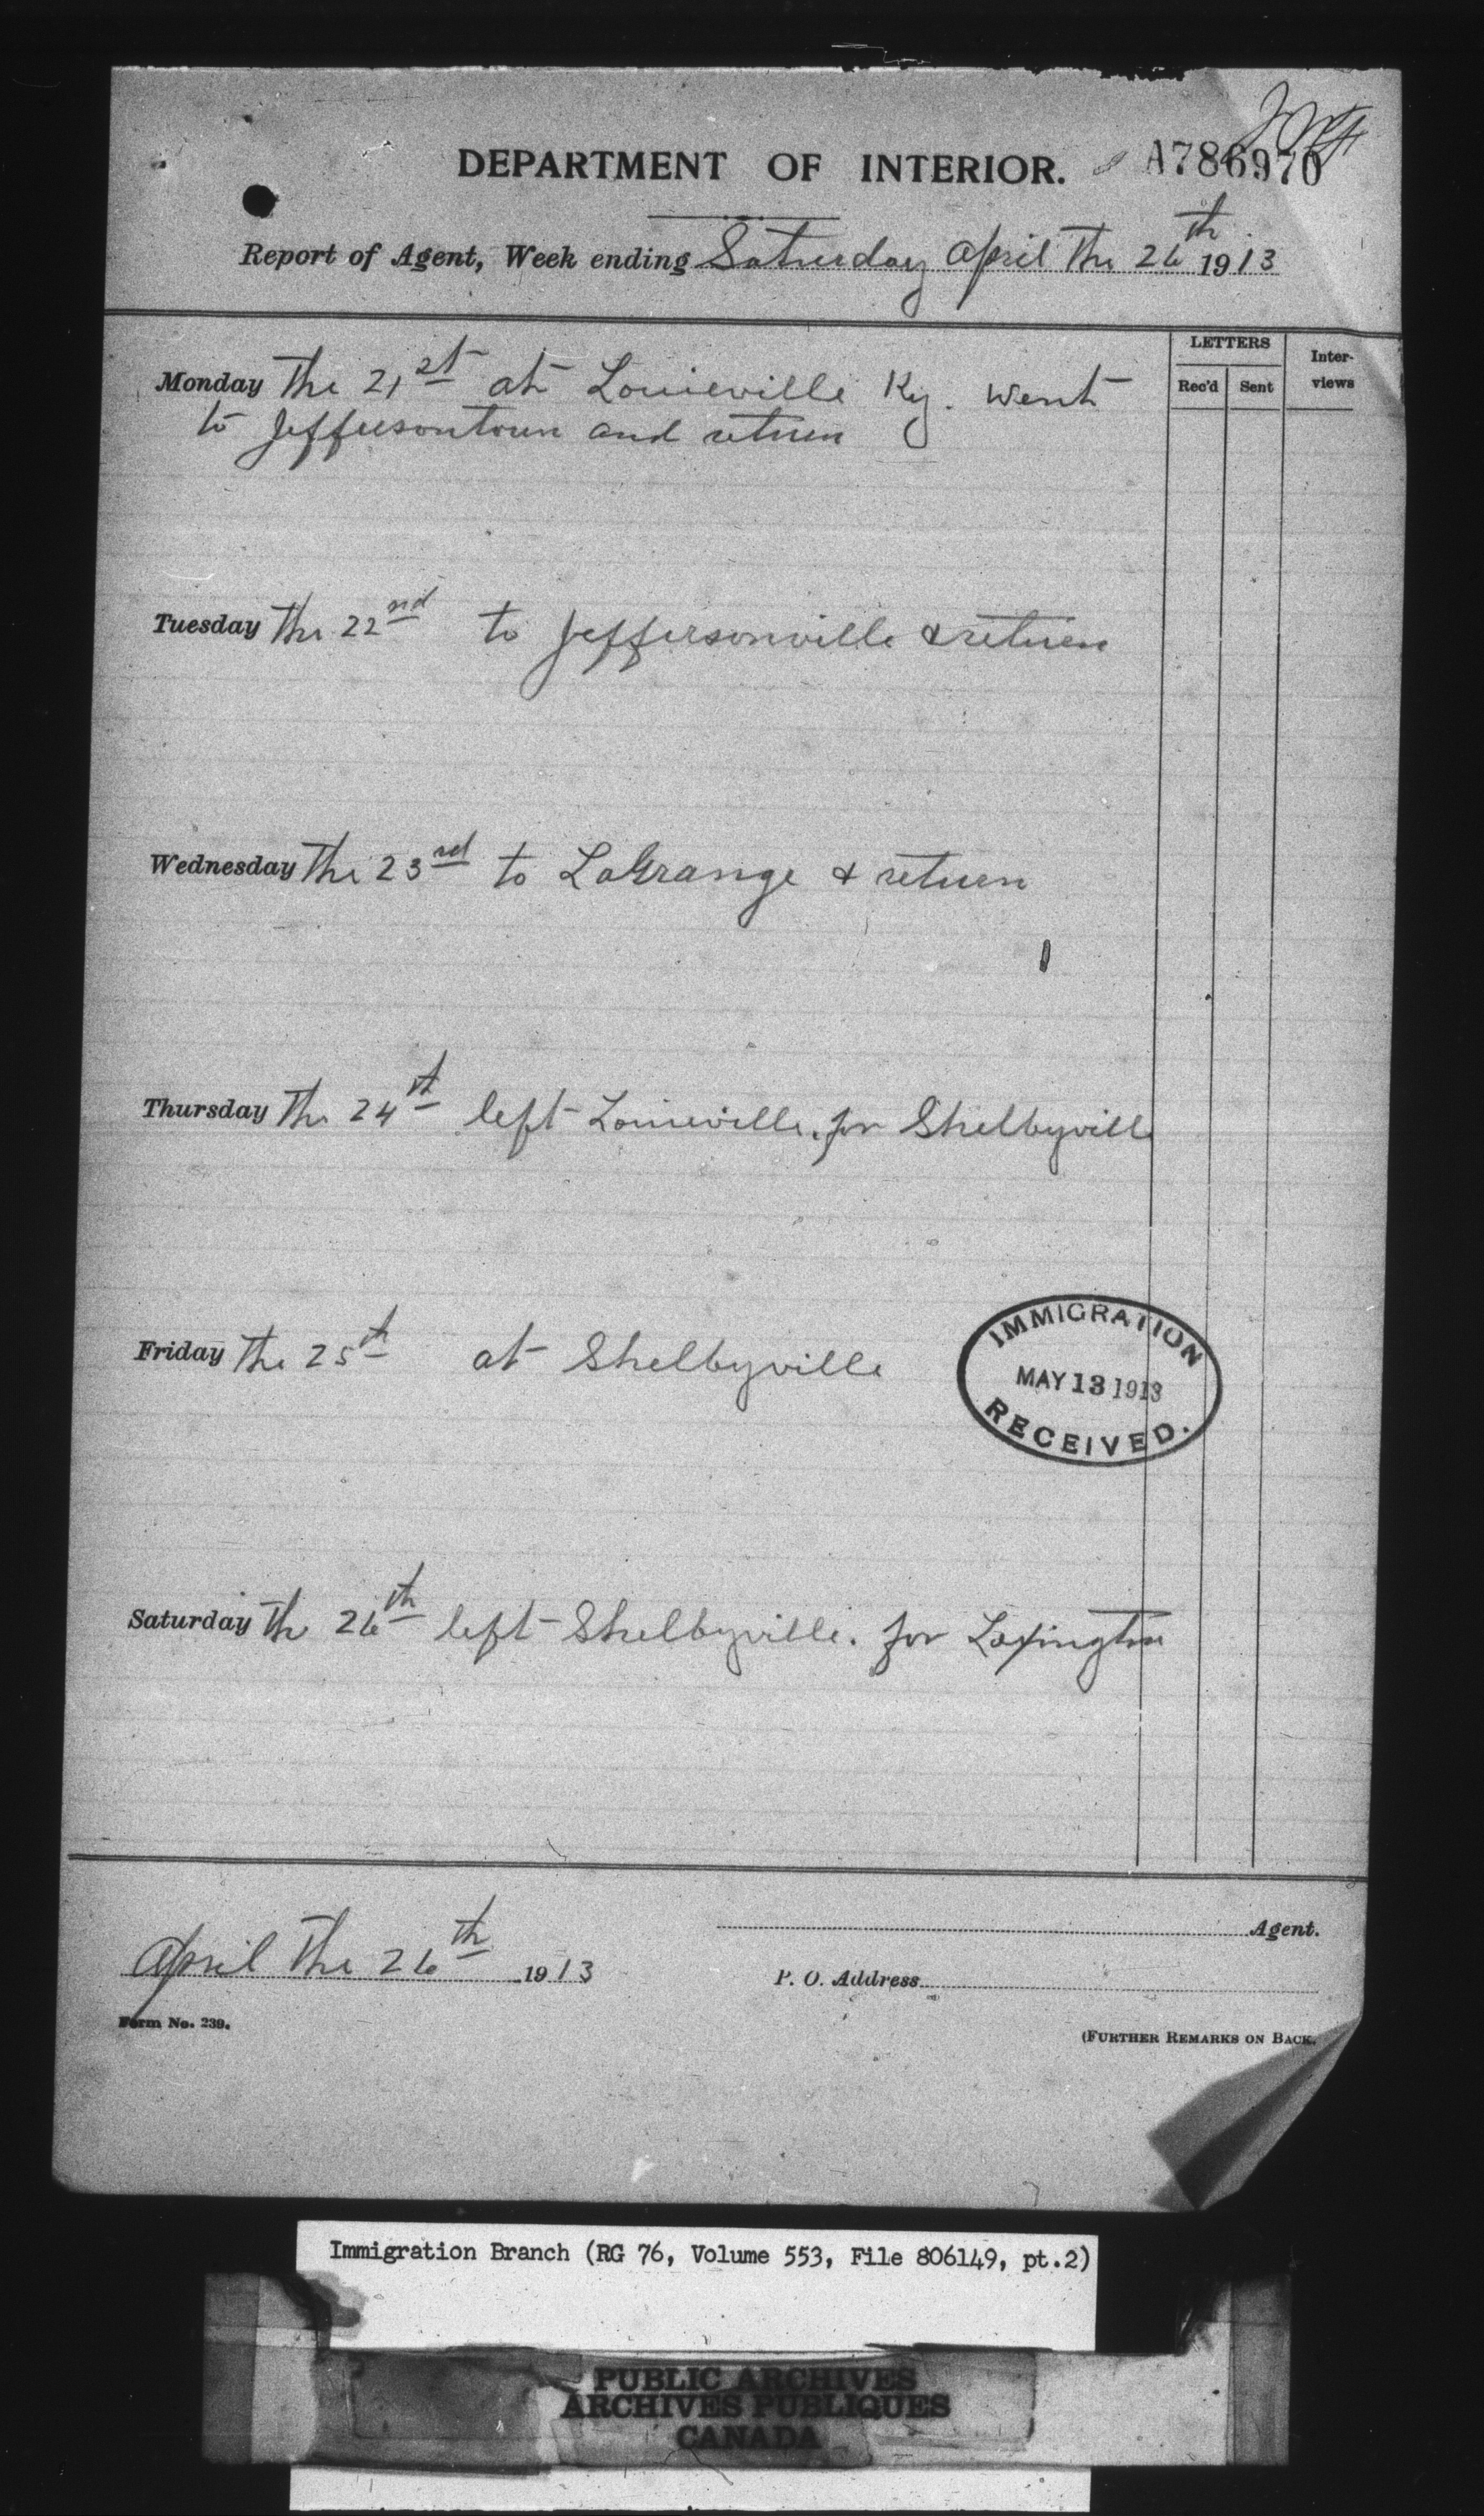 DEPARTMENT OF INTERIOR.
A786970
Report of Agent, Week ending Saturday April The 26th 1913
LETTERS
Rec'd Sent
Inter-
views
Monday The 21st at Louieville Ky. went
to Jeffersontown and return
Tuesday The 22nd to Jeffersonville & return
Wednesday The 23rd to LaGrange & return
Thursday The 24th left Louieville. for Shelbyville
Friday The 25th at Shelbyville
IMMIGRATION
MAY 13 1913
RECEIVED.
Saturday The 26th left Shelbyville. for Lexington
Agent.
April The 26th 1913
P. O. Address
Form No. 239.
(FURTHER REMARKS ON BACK.
Immigration Branch (RG 76, Volume 553, File 806149, pt.2)
PUBLIC ARCHIVES
ARCHIVES PUBLIQUES
CANADA